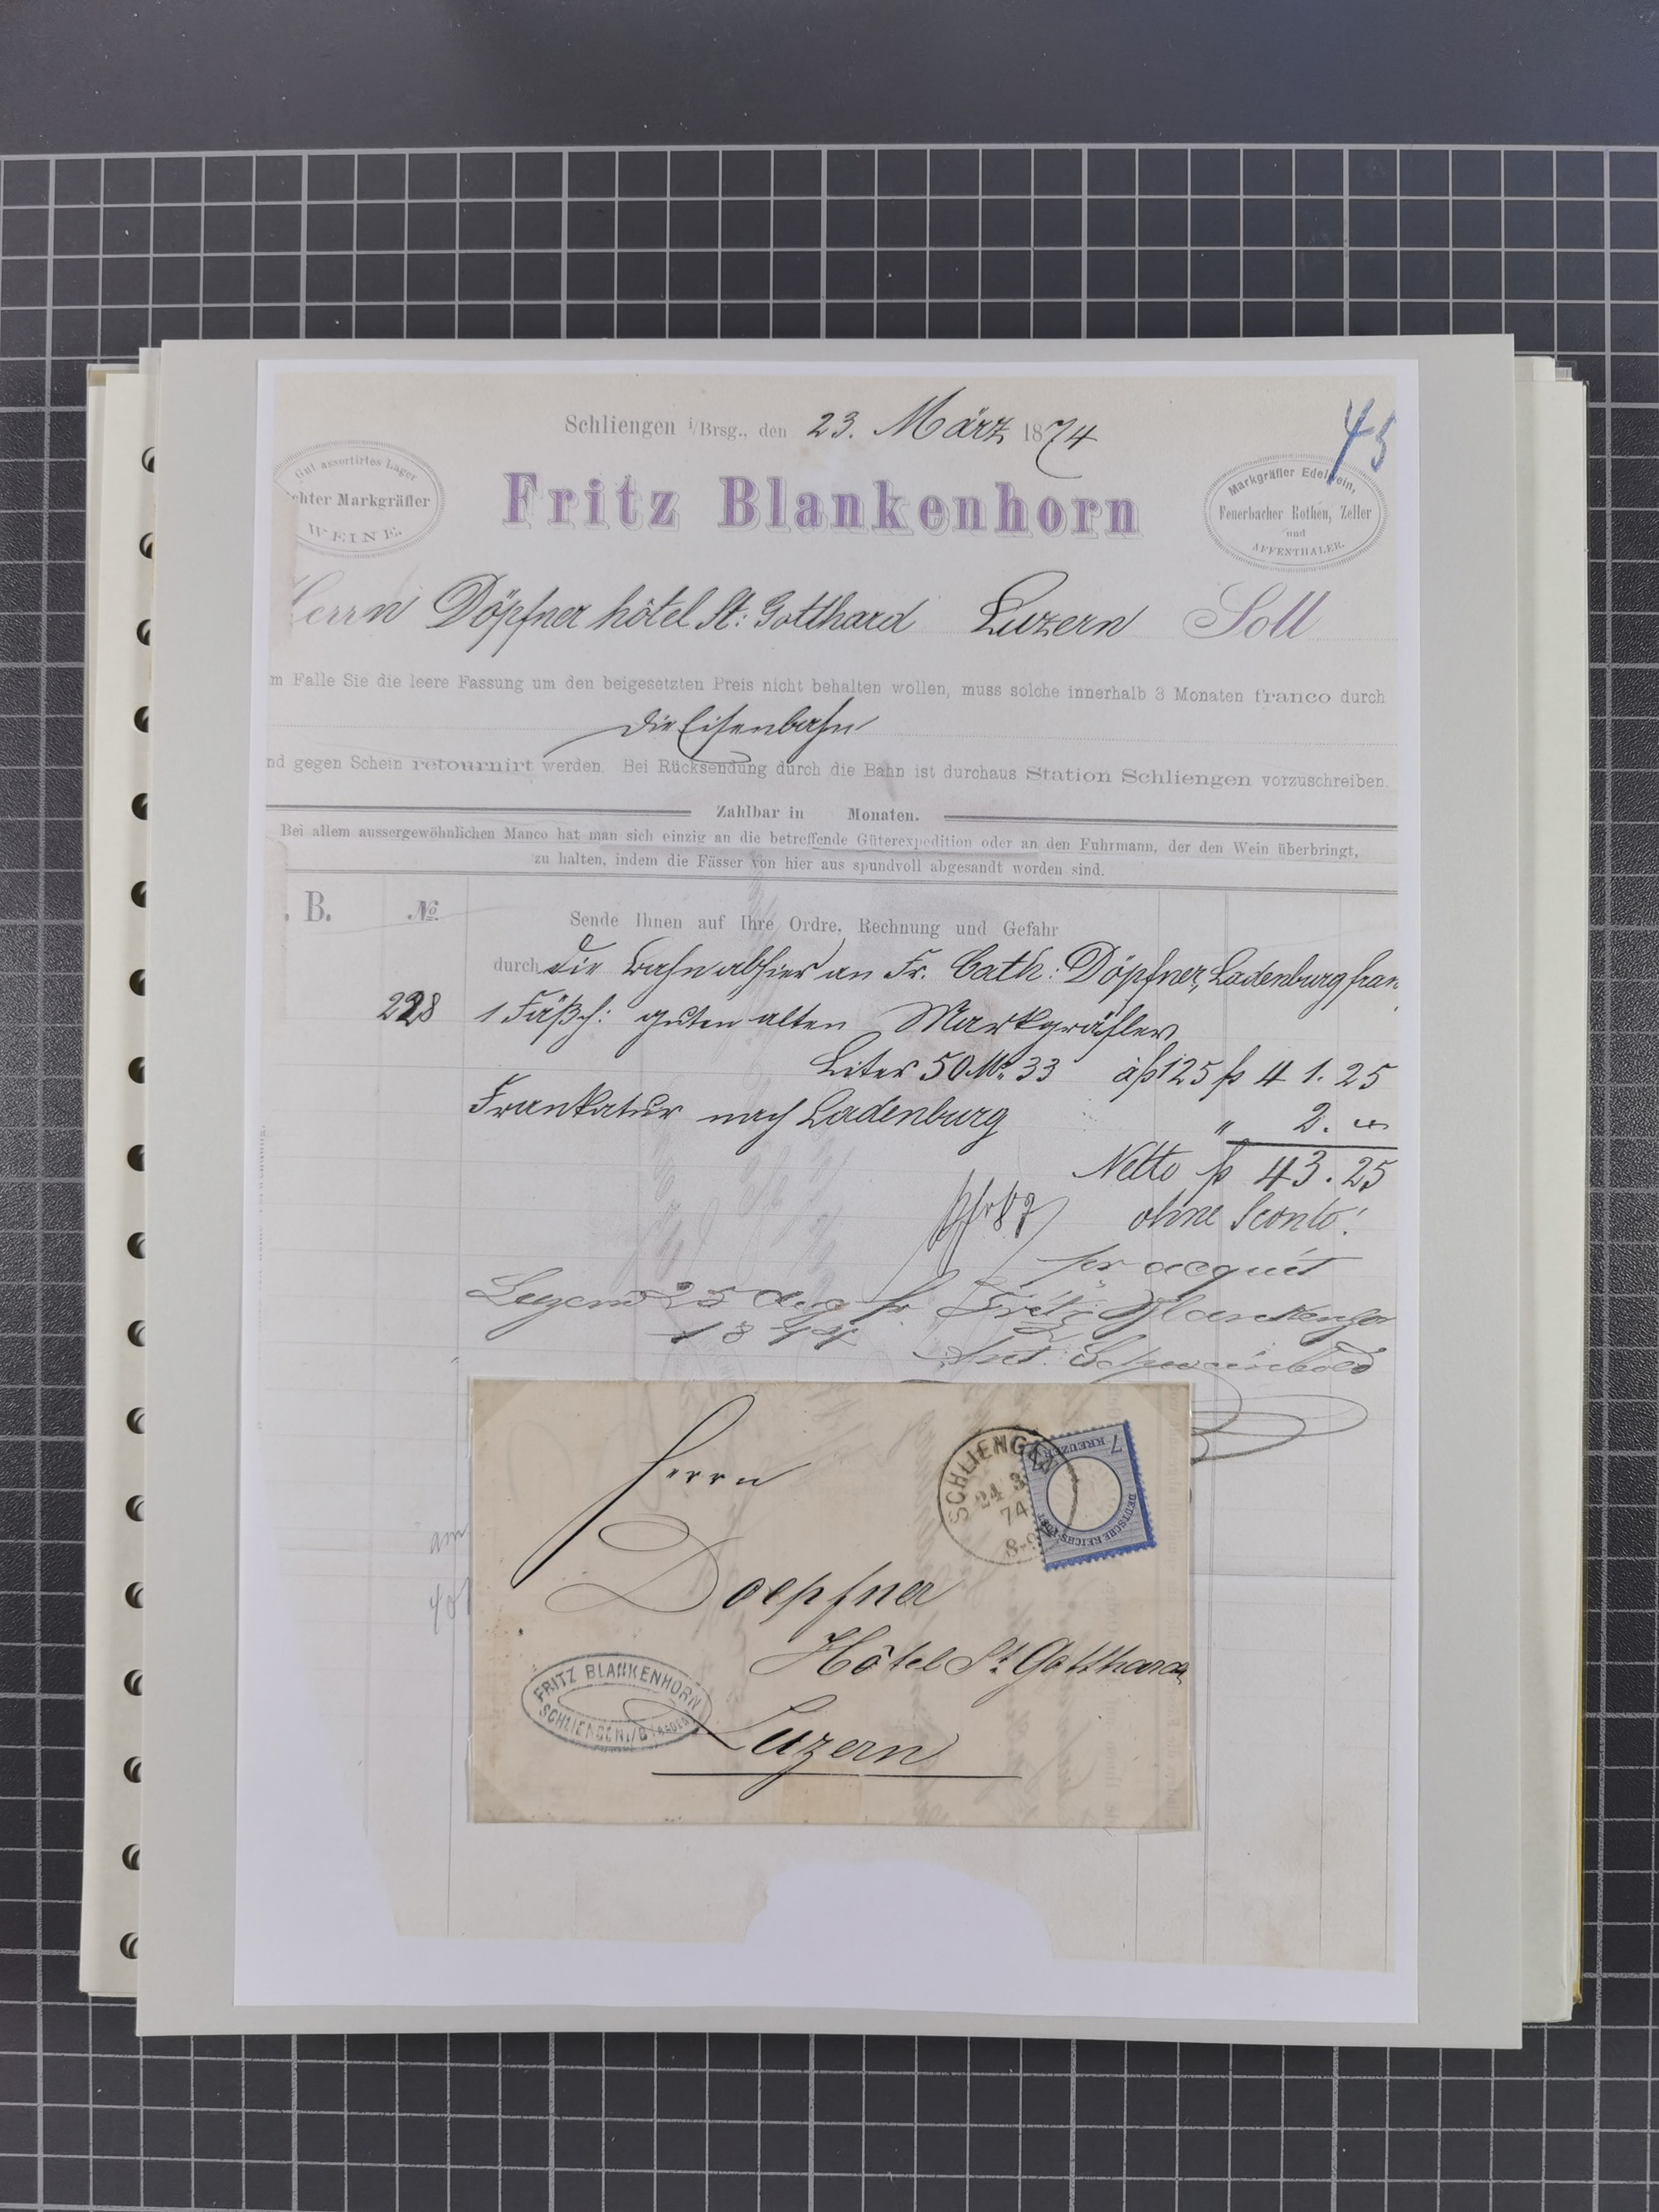 Schliengen i/Brsg., den 23. März 1874
45
Gut assortirtes Lager
chter Markgräfler
WEINE.
Fritz Blankenhorn
Markgräfler Edelwein,
Feuerbacher Rothen, Zeller
und
AFFENTHALER.
Herrn Döpfner hôtel St: Gotthard Luzern Soll
m Falle Sie die leere Fassung um den beigesetzten Preis nicht behalten wollen, muss solche innerhalb 3 Monaten franco durch
die Eisenbahn
nd gegen Schein retournirt werden. Bei Rücksendung durch die Bahn ist durchaus Station Schliengen vorzuschreiben.
Zahlbar in Monaten.
Bei allem aussergewöhnlichen Manco hat man sich einzig an die betreffende Güterexpedition oder an den Fuhrmann, der den Wein überbringt,
zu halten, indem die Fässer von hier aus spundvoll abgesandt worden sind.
. B. No
Sende Ihnen auf Ihre Ordre, Rechnung und Gefahr
durch die Bahn abhier an Fr. Cath: Döpfner, Ladenburg fran
228 1 Fäßch: guten alten Markgräfler
Liter 50 No. 33 à f 125 f 41.25
Frankatur nach Ladenburg " 2. "
Netto f 43.25
ohne Sconto!
pr acquit
Luzern 25 Aug pr. Fritz Blankenhor
1874
Ant.
Herrn
Doepfner
Hôtel St. Gotthard
Luzern
SCHLIENGEN
24 3
74
8-9
7 KREUZER 7
DEUTSCHE REICHS-POST
FRITZ BLANKENHORN
SCHLIENGEN i/B (BADEN)